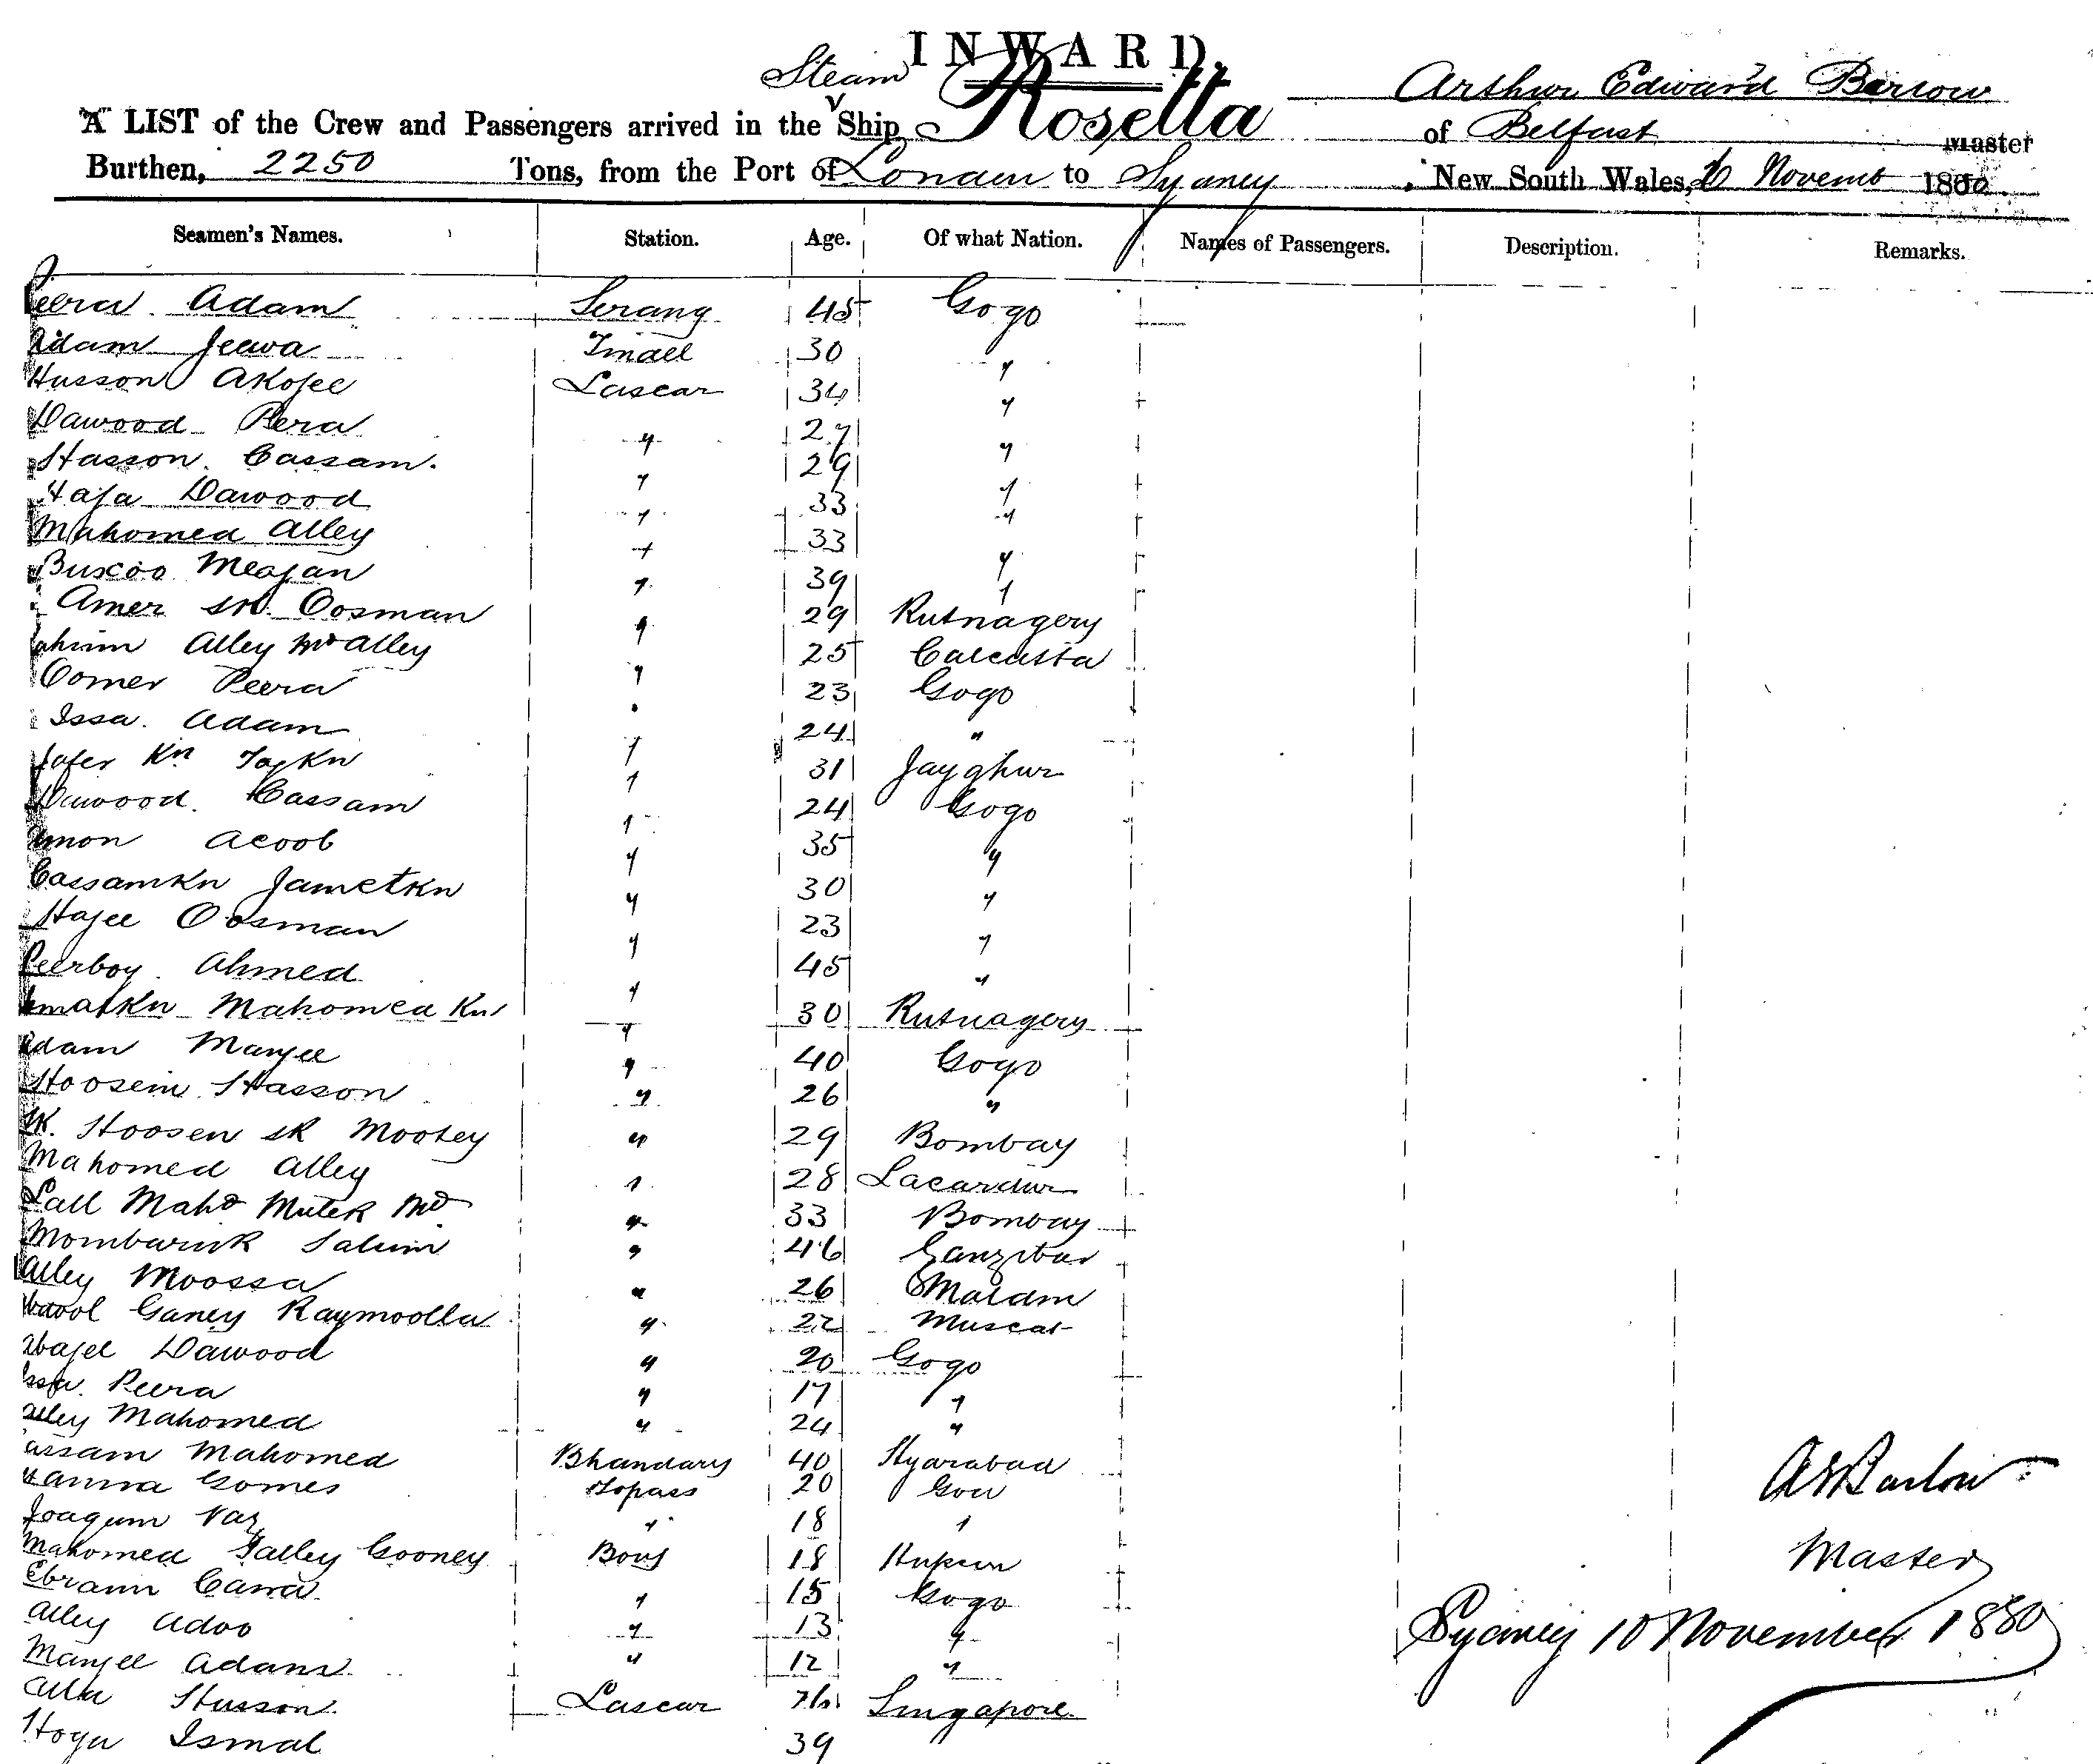 INWARD.
Steam
Arthur Edward Barlow
A LIST of the Crew and Passengers arrived in the Ship Rosetta of Belfast Master
Burthen, 2250 Tons, from the Port of London to Sydney, New South Wales, 10 Novemb 1880.
Seamen's Names. Station. Age. Of what Nation. Names of Passengers. Description. Remarks.
Peera Adam Serang 45 Gogo
Adam Jeewa Tindel 30 "
Husson Akojee Lascar 34 "
Dawood Peera " 27 "
Hasson Cassam. " 29 "
Haja Dawood " 33 "
Mahomed Alley " 33 "
Buxoo Meajan " 39 "
Amer SK. Oosman " 29 Rutnagery
Alley Md Alley " 25 Calcutta
Oomer Peera " 23 Gogo
Issa. Adam " 24 "
Jafer Kn TajKn " 31 Jayghur
Dawood. Cassam " 24 Gogo
Acoob " 35 "
CassamKn JametKn " 30 "
Hajee Oosman " 23 "
Peerboy. Ahmed " 45 "
Mahomed Kn " 30 Rutnagery
Adam Manjee " 40 Gogo
Hoosein Hasson " 26 "
SK. Hoosen SK Mootey " 29 Bombay
Mahomed Alley " 28
Lall Mahd Mutek Md " 33 Bombay
Mombaruk Salim " 46 Zanzibar
Alley Moossa " 26
Abdool Ganey Raymoolla " 22 Muscat
Dawood " 20 Gogo
Issa. Peera " 17 "
Alley Mahomed " 24 "
Cassam Mahomed Bhandary 40 Hyarabad
Gomes Topass 20 Goa
Joaqum Vaz " 18 "
Mahomed Talley Gooney Boys 18
Ebraim Cassa " 15 Gogo
Alley Adoo " 13 "
Manjee Adam " 12 "
Husson Lascar Singapore
Ismal 39
AEBarlow
Master
Sydney 10 November 1880